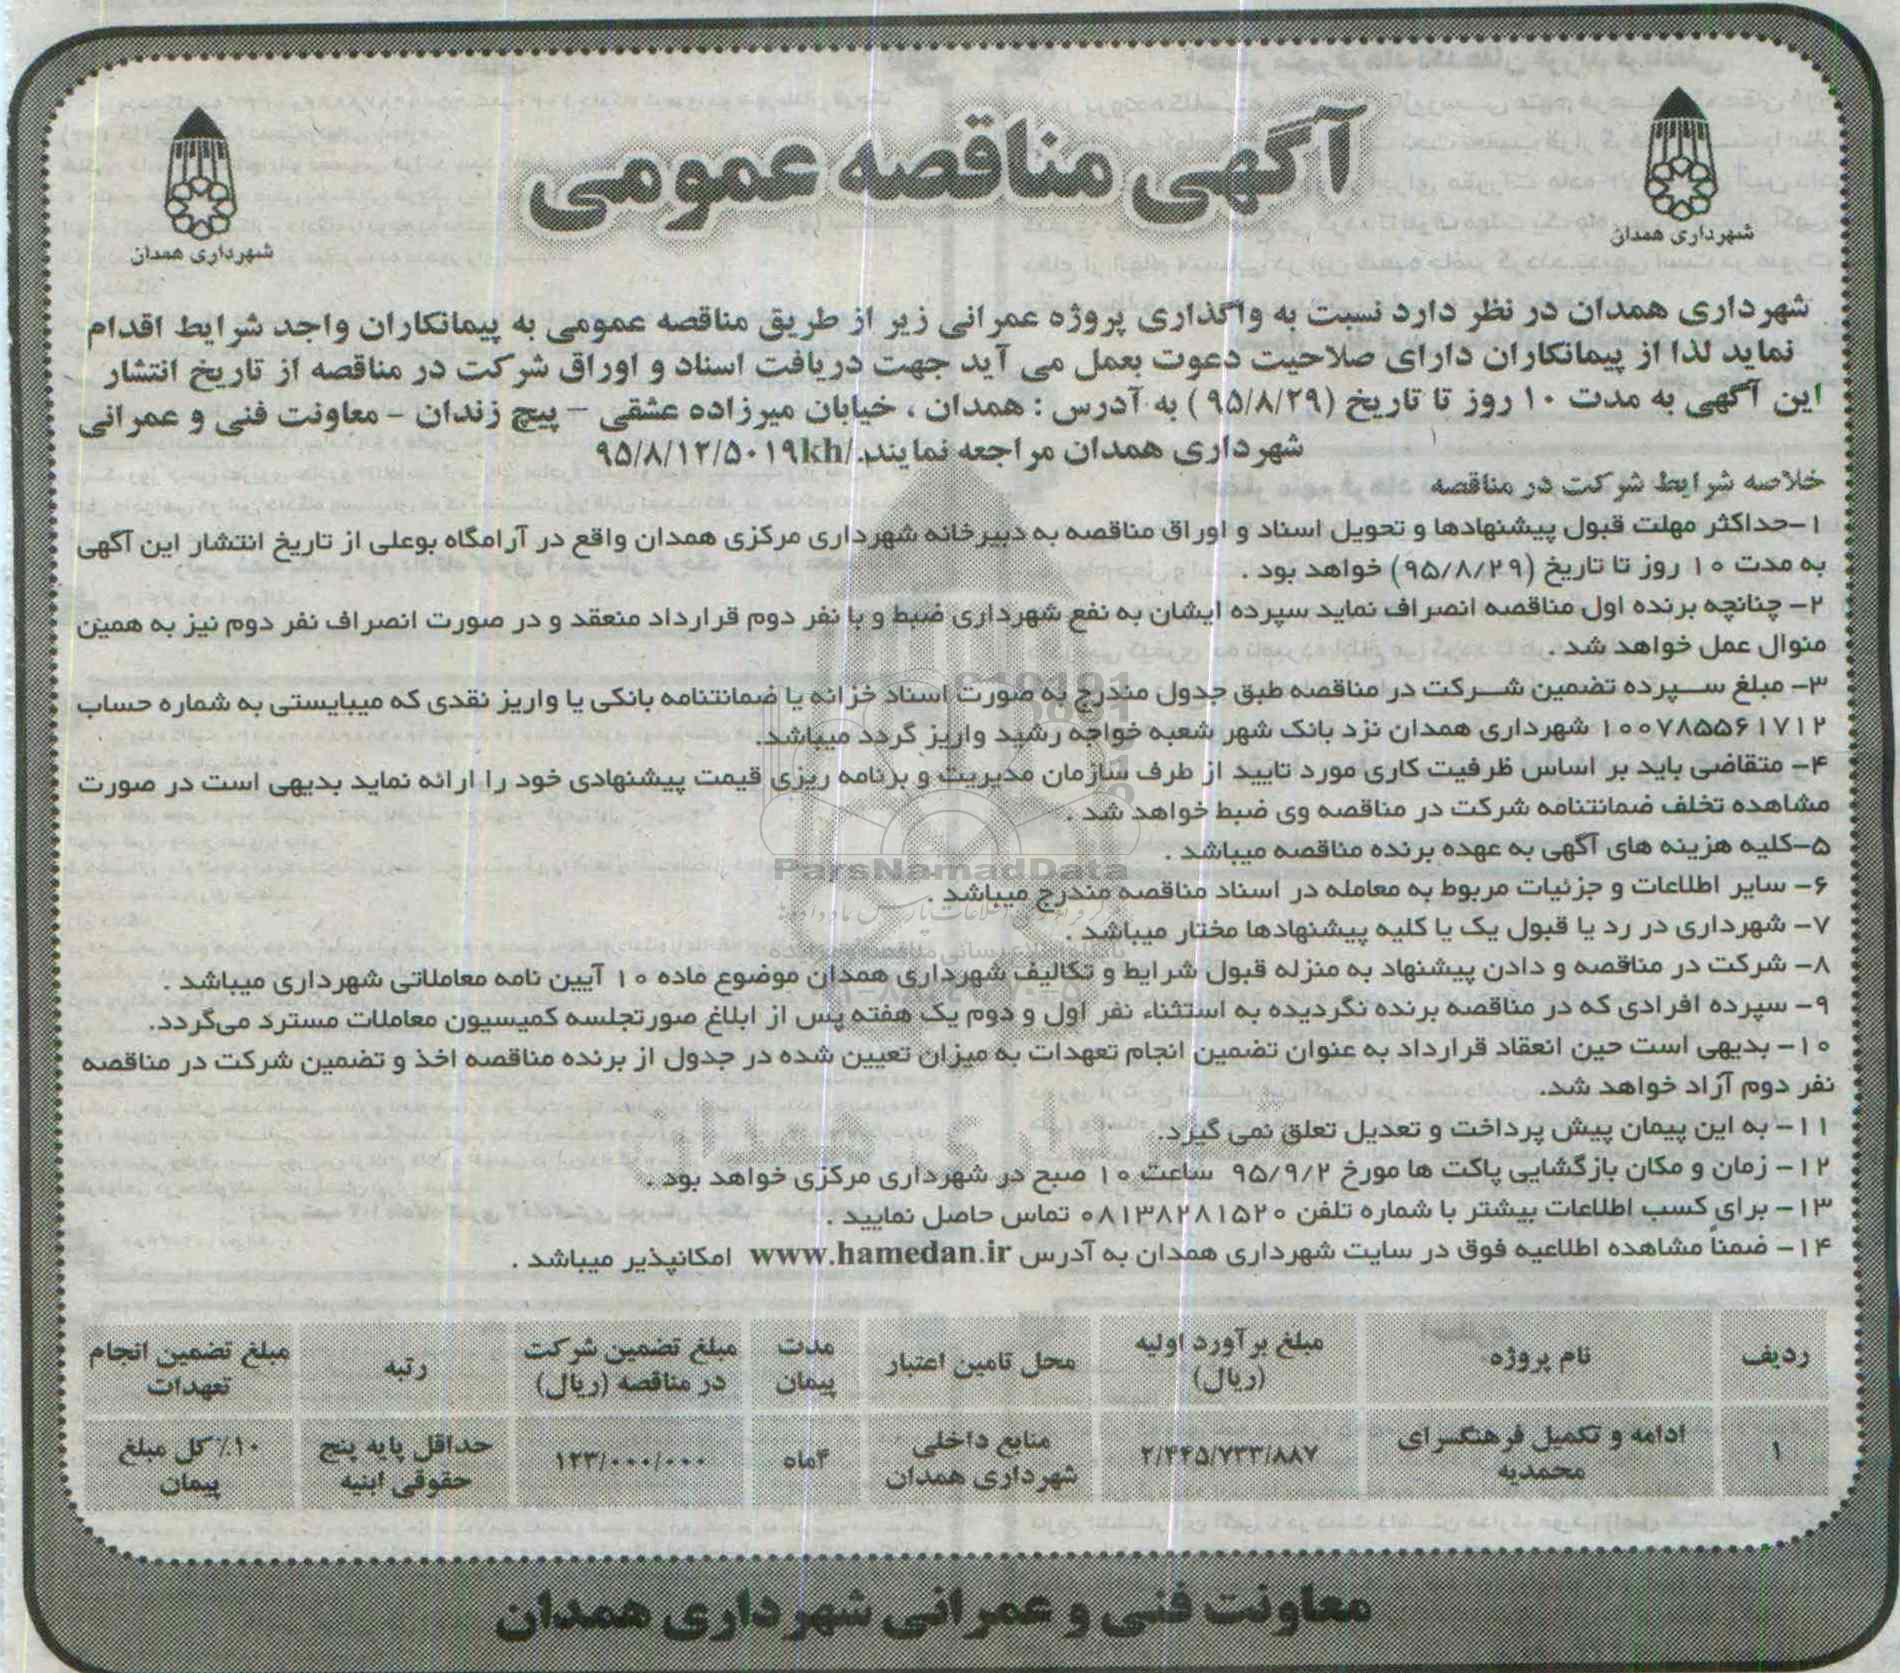 آگهی مناقصه عمومی
شهرداری همدان
شهرداری همدان
شهرداری همدان در نظر دارد نسبت به واگذاری پروژه عمرانی زیر از طریق مناقصه عمومی به پیمانکاران واجد شرایط اقدام
نماید لذا از پیمانکاران دارای صلاحیت دعوت بعمل می آید جهت دریافت اسناد و اوراق شرکت در مناقصه از تاریخ انتشار
این آگهی به مدت ۱۰ روز تا تاریخ (۹۵/۸/۲۹) به آدرس : همدان ، خیابان میرزاده عشقی – پیچ زندان – معاونت فنی و عمرانی
شهرداری همدان مراجعه نمایند./۹۵/۸/۱۲/۵۰۱۹kh
خلاصه شرایط شرکت در مناقصه
۱–حداکثر مهلت قبول پیشنهادها و تحویل اسناد و اوراق مناقصه به دبیرخانه شهرداری مرکزی همدان واقع در آرامگاه بوعلی از تاریخ انتشار این آگهی
به مدت ۱۰ روز تا تاریخ (۹۵/۸/۲۹) خواهد بود .
۲– چنانچه برنده اول مناقصه انصراف نماید سپرده ایشان به نفع شهرداری ضبط و با نفر دوم قرارداد منعقد و در صورت انصراف نفر دوم نیز به همین
منوال عمل خواهد شد .
۳– مبلغ سپرده تضمین شرکت در مناقصه طبق جدول مندرج به صورت اسناد خزانه یا ضمانتنامه بانکی یا واریز نقدی که میبایستی به شماره حساب
۱۰۰۷۸۵۵۶۱۷۱۲ شهرداری همدان نزد بانک شهر شعبه خواجه رشید واریز گردد میباشد.
۴– متقاضی باید بر اساس ظرفیت کاری مورد تایید از طرف سازمان مدیریت و برنامه ریزی قیمت پیشنهادی خود را ارائه نماید بدیهی است در صورت
مشاهده تخلف ضمانتنامه شرکت در مناقصه وی ضبط خواهد شد .
۵–کلیه هزینه های آگهی به عهده برنده مناقصه میباشد .
ParsNamadData
۶– سایر اطلاعات و جزئیات مربوط به معامله در اسناد مناقصه مندرج میباشد .
۷– شهرداری در رد یا قبول یک یا کلیه پیشنهادها مختار میباشد .
۸– شرکت در مناقصه و دادن پیشنهاد به منزله قبول شرایط و تکالیف شهرداری همدان موضوع ماده ۱۰ آیین نامه معاملاتی شهرداری میباشد .
۹– سپرده افرادی که در مناقصه برنده نگردیده به استثناء نفر اول و دوم یک هفته پس از ابلاغ صورتجلسه کمیسیون معاملات مسترد می‌گردد.
۱۰– بدیهی است حین انعقاد قرارداد به عنوان تضمین انجام تعهدات به میزان تعیین شده در جدول از برنده مناقصه اخذ و تضمین شرکت در مناقصه
نفر دوم آزاد خواهد شد.
۱۱– به این پیمان پیش پرداخت و تعدیل تعلق نمی گیرد.
۱۲– زمان و مکان بازگشایی پاکت ها مورخ ۹۵/۹/۲ ساعت ۱۰ صبح در شهرداری مرکزی خواهد بود .
۱۳– برای کسب اطلاعات بیشتر با شماره تلفن ۰۸۱۳۸۲۸۱۵۲۰ تماس حاصل نمایید .
۱۴– ضمناً مشاهده اطلاعیه فوق در سایت شهرداری همدان به آدرس www.hamedan.ir امکانپذیر میباشد .
ردیف | نام پروژه | مبلغ برآورد اولیه (ریال) | محل تامین اعتبار | مدت پیمان | مبلغ تضمین شرکت در مناقصه (ریال) | رتبه | مبلغ تضمین انجام تعهدات
۱ | ادامه و تکمیل فرهنگسرای محمدیه | ۲/۴۴۵/۷۳۳/۸۸۷ | منابع داخلی شهرداری همدان | ۴ماه | ۱۲۳/۰۰۰/۰۰۰ | حداقل پایه پنج حقوقی ابنیه | ۱۰٪ کل مبلغ پیمان
معاونت فنی و عمرانی شهرداری همدان